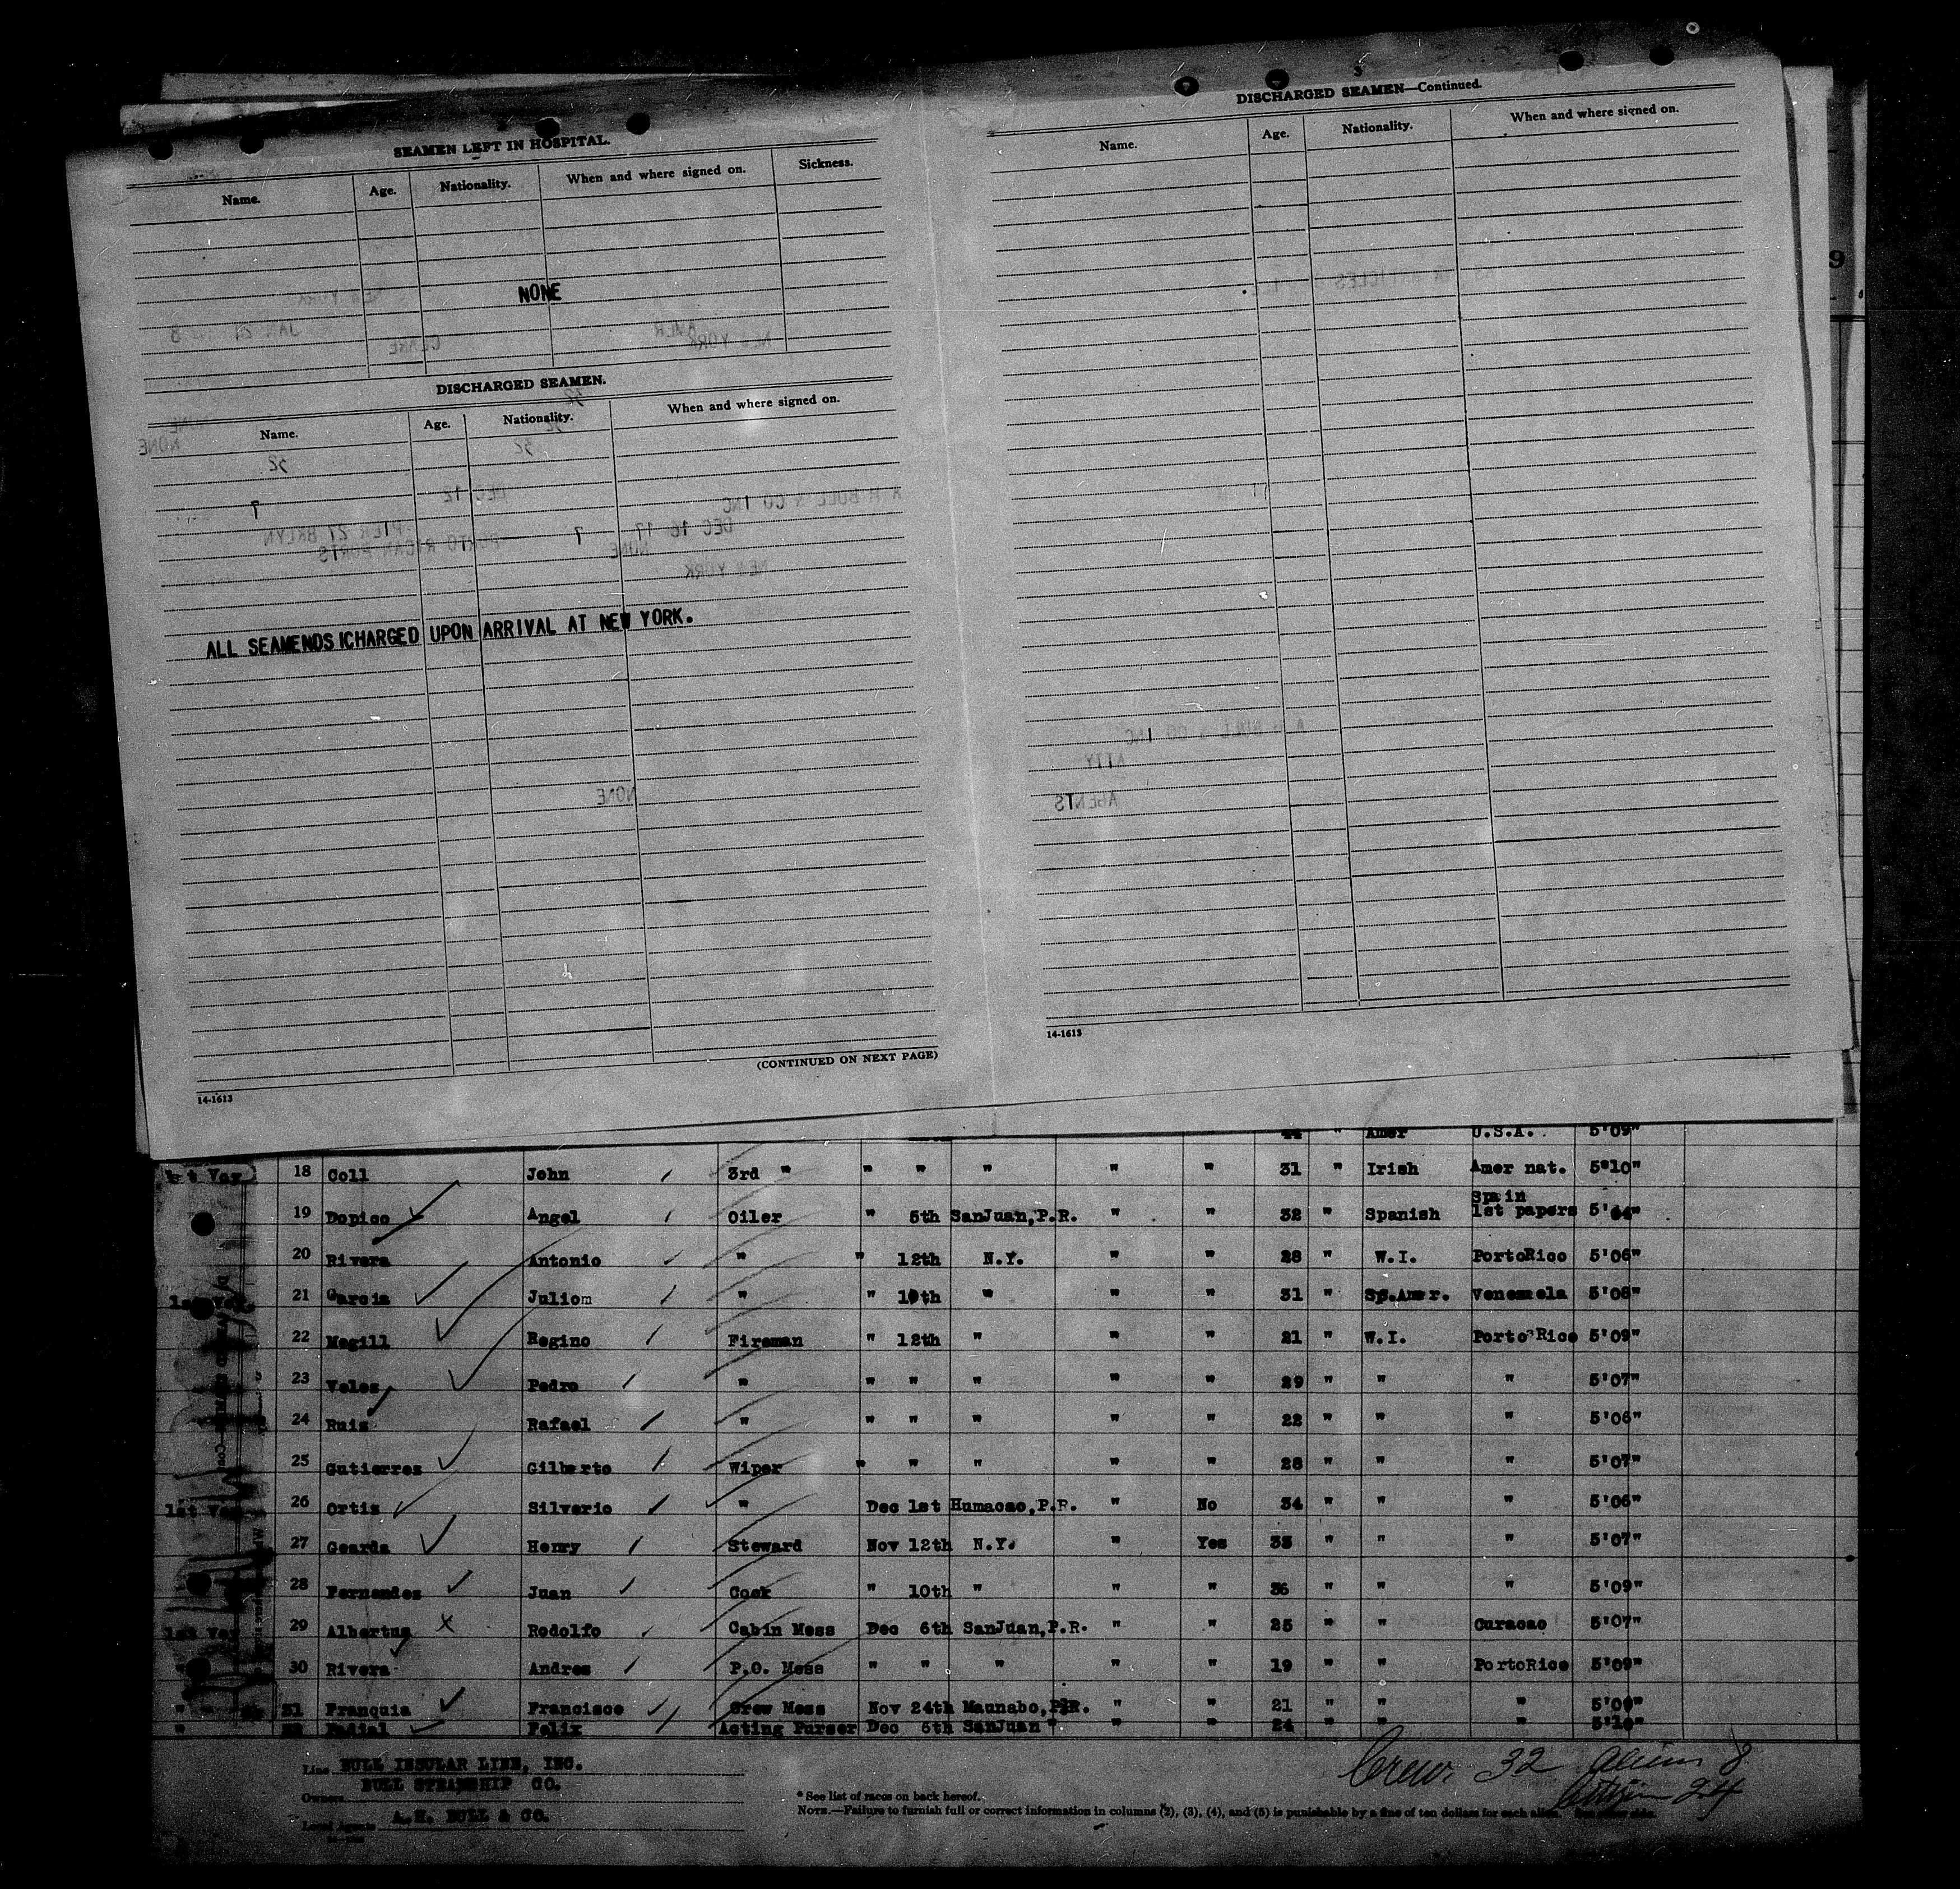 SEAMEN LEFT IN HOSPITAL.
Name. Age. Nationality. When and where signed on. Sickness.
NONE
DISCHARGED SEAMEN.
Name. Age. Nationality. When and where signed on.
ALL SEAMENDSICHARGED UPON ARRIVAL AT NEW YORK.
(CONTINUED ON NEXT PAGE)
14-1613
DISCHARGED SEAMEN—Continued.
Name. Age. Nationality. When and where signed on.
14-1613
9
44 " Amer U.S.A. 5'09"
18 Coll John 3rd " " " " " " 31 " Irish Amer nat. 5'10"
19 Dopico Angel Oiler " 5th SanJuan,P.R. " " 32 " Spanish Spain 1st papers
20 Rivera Antonio " " 12th N.Y. " " 28 " W.I. PortoRico 5'06"
21 Garcia Juliom " " 10th " " " 31 " Sp.Amer. Venezuela 5'08"
22 Megill Regino Fireman " 12th " " " 21 " W.I. Porto Rico 5'09"
23 Velez Pedro " " " " " " 29 " " " 5'07"
24 Ruiz Rafael " " " " " " 22 " " " 5'06"
25 Gutierrez Gilberto Wiper " " " " " 28 " " " 5'07"
1st Voy 26 Ortiz Silverio " Dec 1st Humacao,P.R. " No 34 " " " 5'06"
27 Gearda Henry Steward Nov 12th N.Y. " Yes 33 " " " 5'07"
28 Fernandez Juan Cook " 10th " " " 36 " " " 5'09"
1st Voy 29 Albertus Rodolfo Cabin Mess Dec 6th SanJuan,P.R. " " 25 " " Curacao 5'07"
30 Rivera Andres P.O. Mess " " " " " 19 " " PortoRico 5'09"
" 31 Franquia Francisco Crew Mess Nov 24th Maunabo,P.R. " " 21 " " "
" Felix Acting Purser Dec 6th SanJuan " " " 24 " " "
Line BULL INSULAR LINE, INC.
Owners BULL STEAMSHIP CO.
Local Agents A.H. BULL & CO.
* See list of races on back hereof.
NOTE.—Failure to furnish full or correct information in columns (2), (3), (4), and (5) is punishable by a fine of ten dollars for each alien.
Crew 32 Aliens 8
Citizen 24